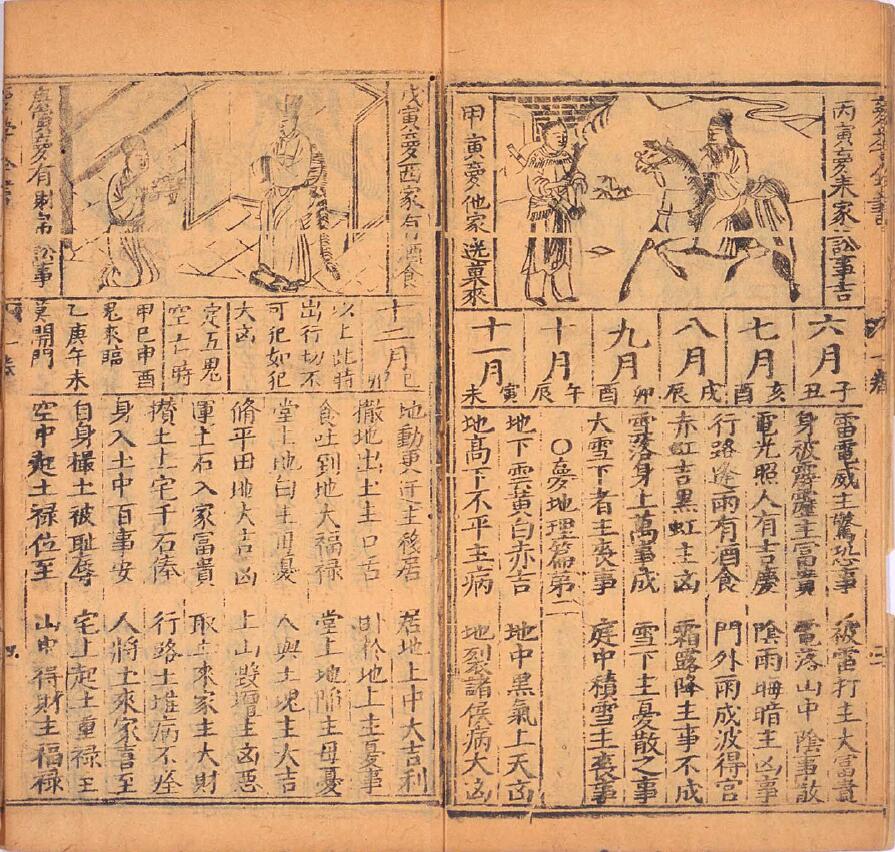 丙寅夢未家訟事吉
甲寅夢他家送菓來
六月 子丑
七月 亥酉
八月 戌辰
九月 卯酉
十月 午辰
十一月 寅未
雷電威主驚恐事 被雷打主大富貴
身被霹靂主富貴 電落山中陰事散
電光照人有吉慶 陰雨晦暗主凶事
行路逢雨有酒食 門外雨成波得官
赤虹吉黑虹主凶 霜露降主事不成
雪落身上萬事成 雪下主憂散之事
大雪下者主喪事 庭中積雪主喪事
○夢地理篇第二
地下雲黃白赤吉 地中黑氣上天凶
地高下不平主病 地裂諸侯病大凶
戊寅夢西家有酒食
庚寅夢有刺帛訟事
十二月
以上此時
出行切不
可犯如犯
大凶
定五鬼
空亡時
甲巳申酉
鬼來臨
乙庚午未
莫開門
地動更遷主移居 居地上中大吉利
撒地出土主口舌 卧於地上主憂事
食吐到地大福祿 堂上地陷主母憂
堂上地白主母憂 人與土塊主大吉
脩平田地大吉凶 上山
運土石入家富貴 取土來家主大財
攢土上宅千石俸 行路土堆病不痊
身入土中百事安 人將土來家喜至
自身撮土被耻辱 宅上起土重祿至
空中起土祿位至 山中得財主福祿